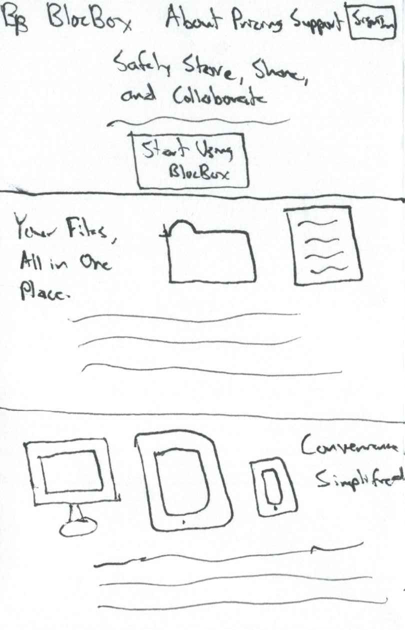 BB BlocBox About Pricing Support Sign In
Safely Store, Share,
and Collaborate
Start Using
BlocBox
Your Files,
All in One
Place.
Convenience,
Simplified